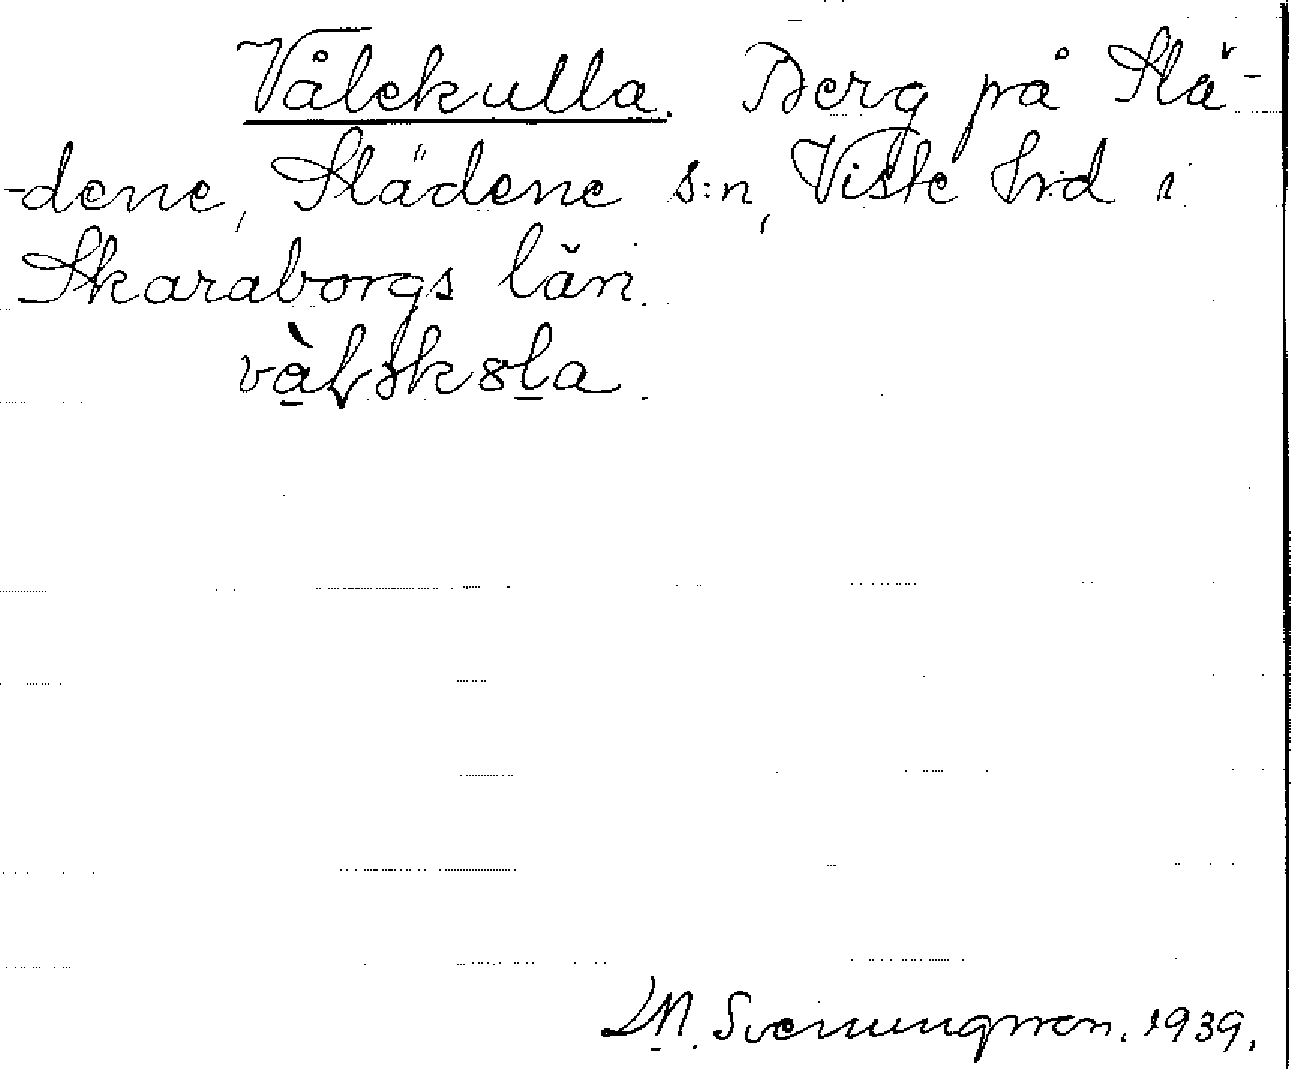 Vålekulla. Berg på Slä-
-dene, Slädene s:n, Viste hrd i
Skaraborgs län.
D.N. Svenungsson. 1939.